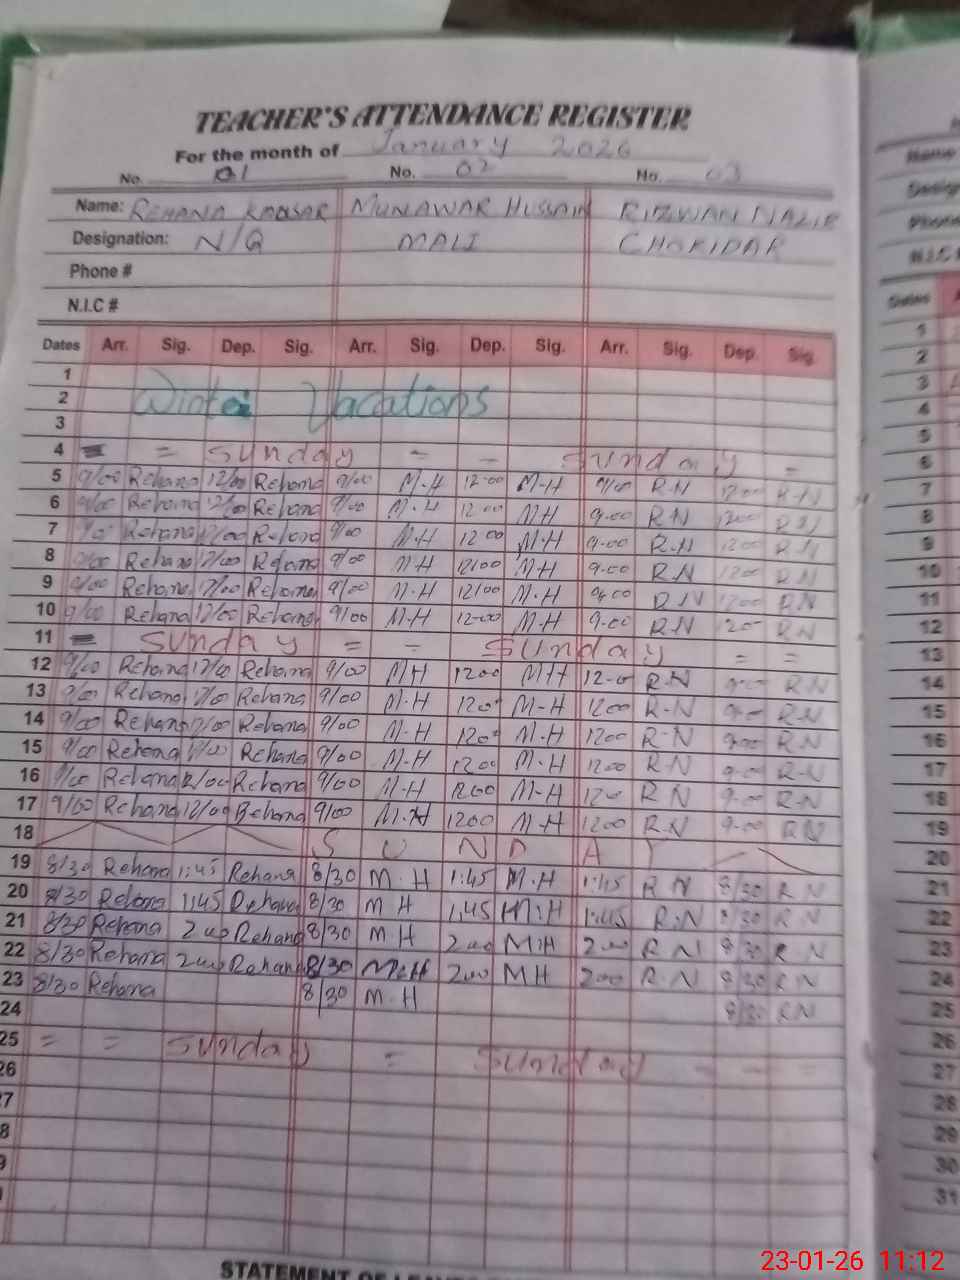 TEACHER'S ATTENDANCE REGISTER
For the month of January 2026
No. 01 No. 02 No. 03
Name: REHANA KAOSAR MUNAWAR HUSSAIN RIZWAN NAZIR
Designation: N/Q MALI CHOKIDAR
Phone #
N.I.C #
Dates Arr. Sig. Dep. Sig. Arr. Sig. Dep. Sig. Arr. Sig. Dep. Sig.
1
2 Winter Vacations
3
4 = = Sunday = - Sunday =
5 9/00 Rehana 12/00 Rehana 9/00 M-H 12-00 M-H 9/00 R-N 1200 R-N
6 9/00 Rehana 12/00 Rehana 9/00 M.H 1200 MH 9-00 RN 1200 RN
7 9/00 Rehana 12/00 Rehana 9/00 M.H 1200 M.H 9-00 R.N 1200 RN
8 9/00 Rehana 12/00 Rehana 9/00 M.H 12/00 M.H 9-00 R.N 1200 RN
9 9/00 Rehana 12/00 Rehana 9/00 M.H 12/00 M.H 9/00 R.N 1200 RN
10 9/00 Rehana 12/00 Rehana 9/00 M.H 12-00 M.H 9-00 R.N 1200 RN
11 = Sunday = - Sunday = =
12 9/00 Rehana 12/00 Rehana 9/00 MH 1200 MH 12-0 R.N 9-00 RN
13 9/00 Rehana 12/00 Rehana 9/00 M.H 1200 M-H 1200 R-N 9-00 RN
14 9/00 Rehana 12/00 Rehana 9/00 M.H 1200 M.H 1200 R-N 9-00 R-N
15 9/00 Rehana 12/00 Rehana 9/00 M.H 1200 M.H 1200 R.N 9-00 R-N
16 9/00 Rehana 12/00 Rehana 9/00 M.H 1200 M-H 1200 R.N 9-00 RN
17 9/00 Rehana 12/00 Rehana 9/00 M.H 1200 M.H 1200 RN 9-00 RN
18 S U N D A Y
19 8/30 Rehana 1:45 Rehana 8/30 M.H 1:45 M.H 1:45 R N 8/30 R N
20 8/30 Rehana 1:45 Rehana 8/30 M H 1:45 M:H 1:45 R.N 8/30 RN
21 8/30 Rehana 200 Rehana 8/30 M H 200 M:H 200 R N 8/30 R N
22 8/30 Rehana 200 Rehana 8/30 M:H 200 MH 200 R.N 8/30 RN
23 8/30 Rehana 8/30 M.H 8/30 RN
24
25 = = Sunday = Sunday - - =
26
7
8
9
STATEMENT OF
Dates
1
2
3
4
5
6
7
8
9
10
11
12
13
14
15
16
17
18
19
20
21
22
23
24
25
26
27
28
29
30
31
23-01-26 11:12